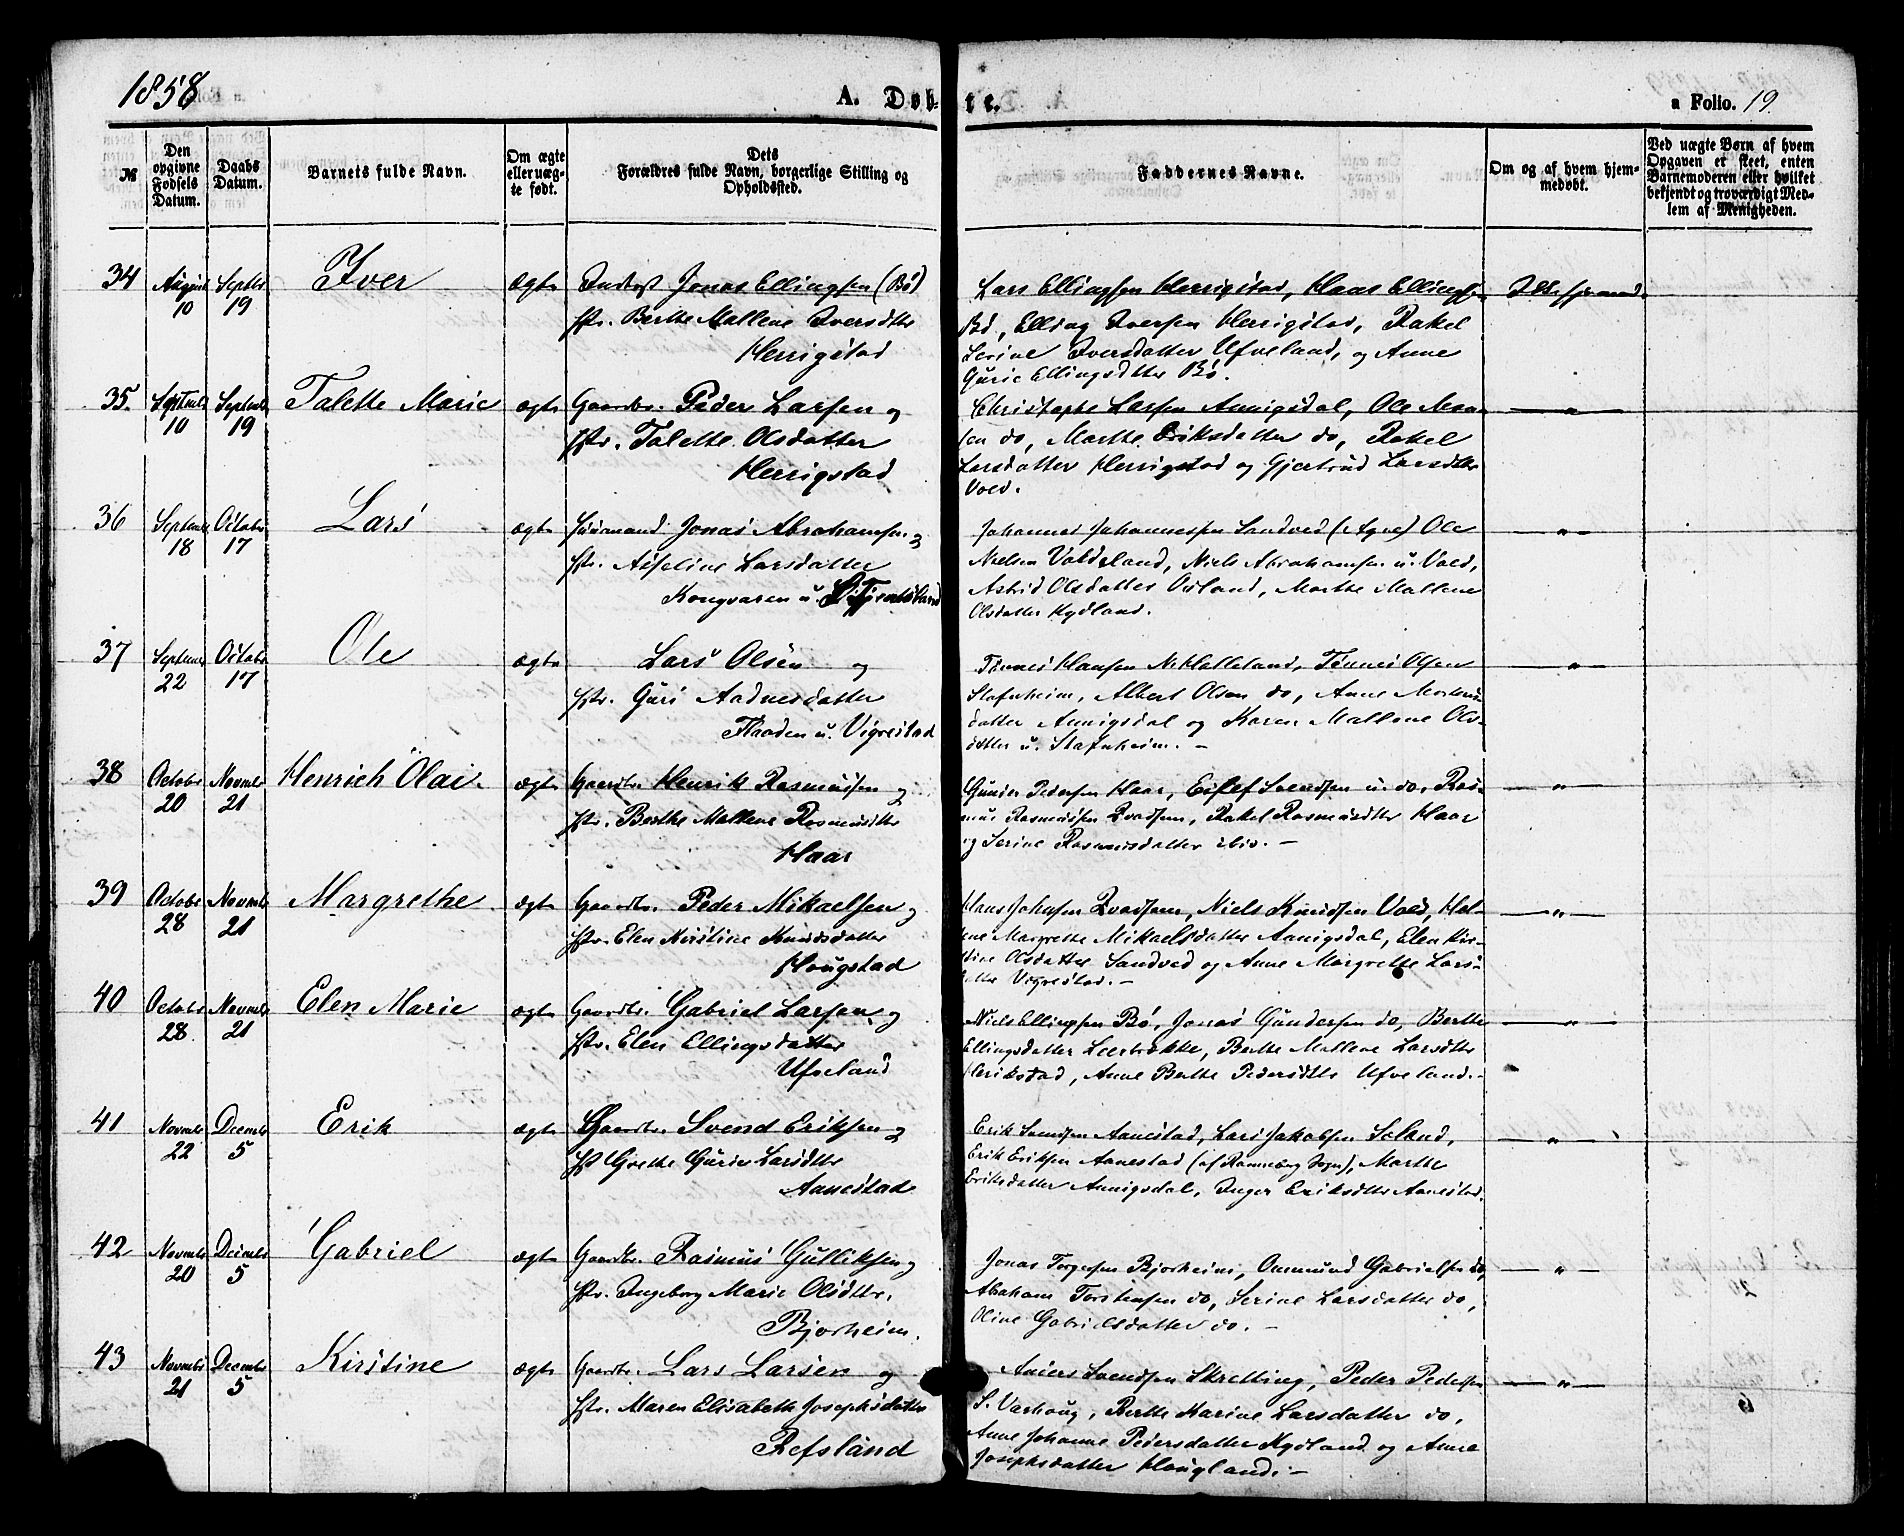 1858
A. Døb-
te.
a Folio. 19.
№
Den opgivne Fødsels Datum.
Daabs Datum.
Barnets fulde Navn.
Om ægte eller uæg- te født.
Dets
Forældres fulde Navn, borgerlige Stilling og
Opholdssted.
Faddernes Navne.
Om og af hvem hjem-
medøbt.
Ved uægte Børn af hvem
Opgaven er skeet, enten
Barnemoderen eller hvilket
bekjendt og troværdigt Med-
lem af Menigheden.
34 August 10 Septbr 19 Iver ægte Jonas Ellingsen (Bø)
Berthe Mallene Iversdtter
Herrigstad
Lars Ellingsen Herrigstad, Hans Ellingsen
Bø, Elling Iversen Herrigstad, Rakel
Serine Iversdatter Ufveland, og Anne
Gurie Ellingsdtter Bø.
35. Septmb 10 Septmb 19 Talette Marie ægte Gaardbr. Peder Larsen og
Hstr. Talette Olsdatter
Herrigstad
Christophe Larsen Aunigsdal, Ole
do, Marthe Eriksdatter do, Rakel
Larsdatter Herrigstad og Gjertrud Larsdtter
Vold.
— " —
36 Septemb 18 Octobr 17 Lars ægte Huusmand Jonas Abrahamsen og
Hstr. Larsdatter
Kongvaren u.
Johannes Johannessen Sandved (Ogne) Ole
Nielsen Valdeland, Niels Abrahamsen u. Vold,
Astrid Olsdatter Odland, Marthe Mallene
Olsdatter Kydland.
— " —
37 Septemb 22 Octobr 17 Ole ægte Lars Olsen og
Hstr. Guri Aadnesdatter
u. Vigrestad
Tønnes Hansen N. Halleland, Tønnes Olsen
Stafnheim, Albert Olsen do, Anne Mortens-
datter Aunigsdal og Karen Mallene Ols-
datter u. Stafnheim. —
— " —
38 Octobr 20 Novmbr 21 Henrich Olai. ægte Gaardbr. Henrik Rasmussen og
Hstr. Berthe Mallene Rasmusdtter
Haar
Gunder Pedersen Haar, Eilef Svendsen u. do, Ras-
mus Rasmussen Qvassem, Rakel Rasmusdtter Haar
og Serine Rasmusdatter ibid. —
— " —
39 Octobr 28 Novmbr 21 Margrethe ægte Gaardbr. Peder Mikaelsen og
Hstr. Elen Kirstine Knudsdatter
Hougstad
Hans Johnsen Qvassem, Niels Knudsen Vold, Hel-
ene Margrethe Mikaelsdatter Aunigsdal, Elen Kir-
stine Olsdatter Sandved og Anne Margrethe Lars-
datter Vigrestad. —
— " —
40 Octobr 28. Novmbr 21 Elen Marie ægte Gaardbr. Gabriel Larsen og
Hstr. Elen Ellingsdatter
Ufveland
Niels Ellingsen Bø, Jonas Gundersen do, Berthe
Ellingsdatter Leerbrække, Berthe Mallene Larsdtter
Herikstad, Anne Berthe Pedersdtter Ufveland. —
— " —
41 Novmbr 22 Decmbr 5 Erik ægte Gaardbr. Svend Eriksen og
Hst Grethe Gurie Larsdtter
Aanestad
Erik Svendsen Aanestad, Lars Jakobsen Soland,
Erik Eriksen Aanestad (af Sogn), Marthe
Eriksdatter Aunigsdal, Inger Eriksdtter Aanestad.
— " —
42 Novmbr 20 Decmbr 5 Gabriel ægte Gaardbr. Rasmus Gulliksen og
Hstr. Ingeborg Marie Olsdtter.
Bjorheim.
Jonas Torgersen Bjorheim, Ommund Gabrielsen do,
Abraham Torstensen do, Serine Larsdatter do,
Oline Gabrielsdatter do. —
— " —
43 Novmbr 21 Decmbr 5 Kirstine ægte Gaardbr. Lars Larsen og
Hstr. Maren Elisabeth Josephsdatter
Refsland
Svendsen Skretting, Peder Pedersen
S. Varhoug, Berthe Karine Larsdatter do,
Anne Johanne Pedersdatter Kydland og Anne
Josephsdatter Hougland. —
— " —